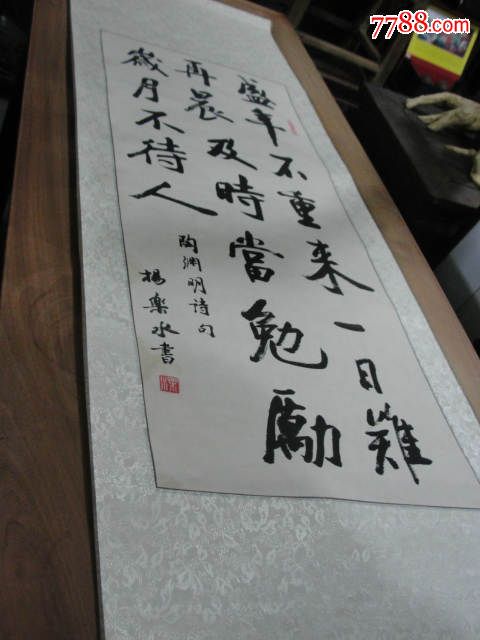 盛年不重来一日難
再晨及時當勉勵
歲月不待人
陶渊明诗句
楊樂水書
7788.com